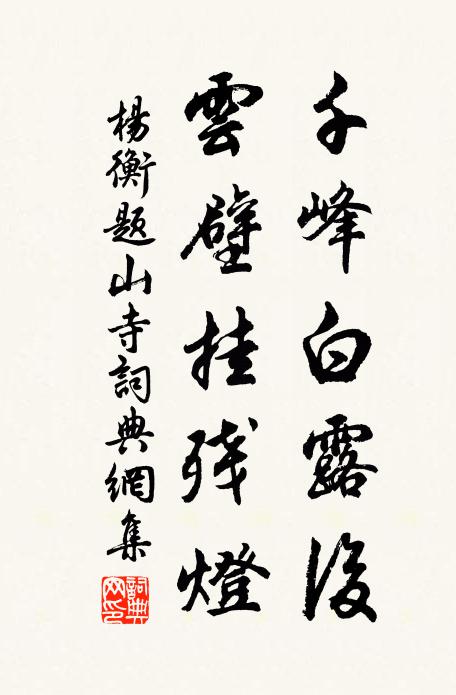 千峰白露後
雲壁挂残燈
楊衡題山寺詞典網集
詞典網印